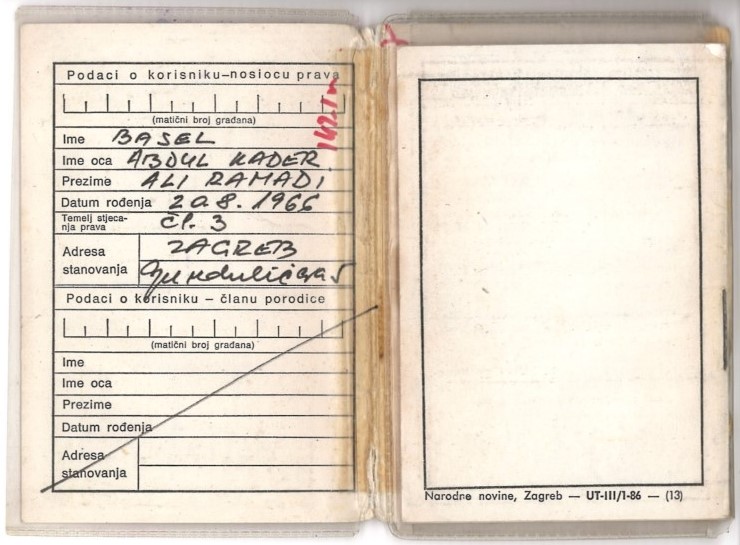 Podaci o korisniku–nosiocu prava
(matični broj građana)
Ime BASEL
Ime oca ABDUL KADER
Prezime ALI RAMADI
Datum rođenja 20.8.1966
Temelj stjeca-
nja prava čl. 3
Adresa ZAGREB
stanovanja Gundulićeva 5
Podaci o korisniku – članu porodice
(matični broj građana)
Ime
Ime oca
Prezime
Datum rođenja
Adresa
stanovanja
Narodne novine, Zagreb — UT-III/1-86 — (13)